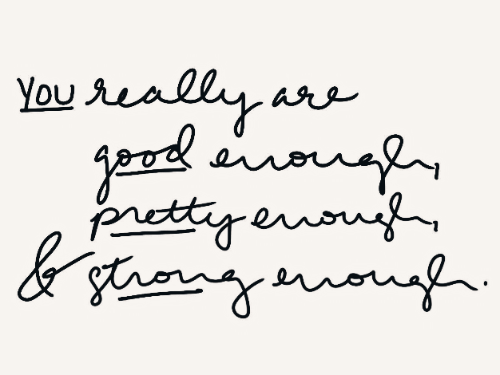 YOU really are
good enough,
pretty enough,
& strong enough.